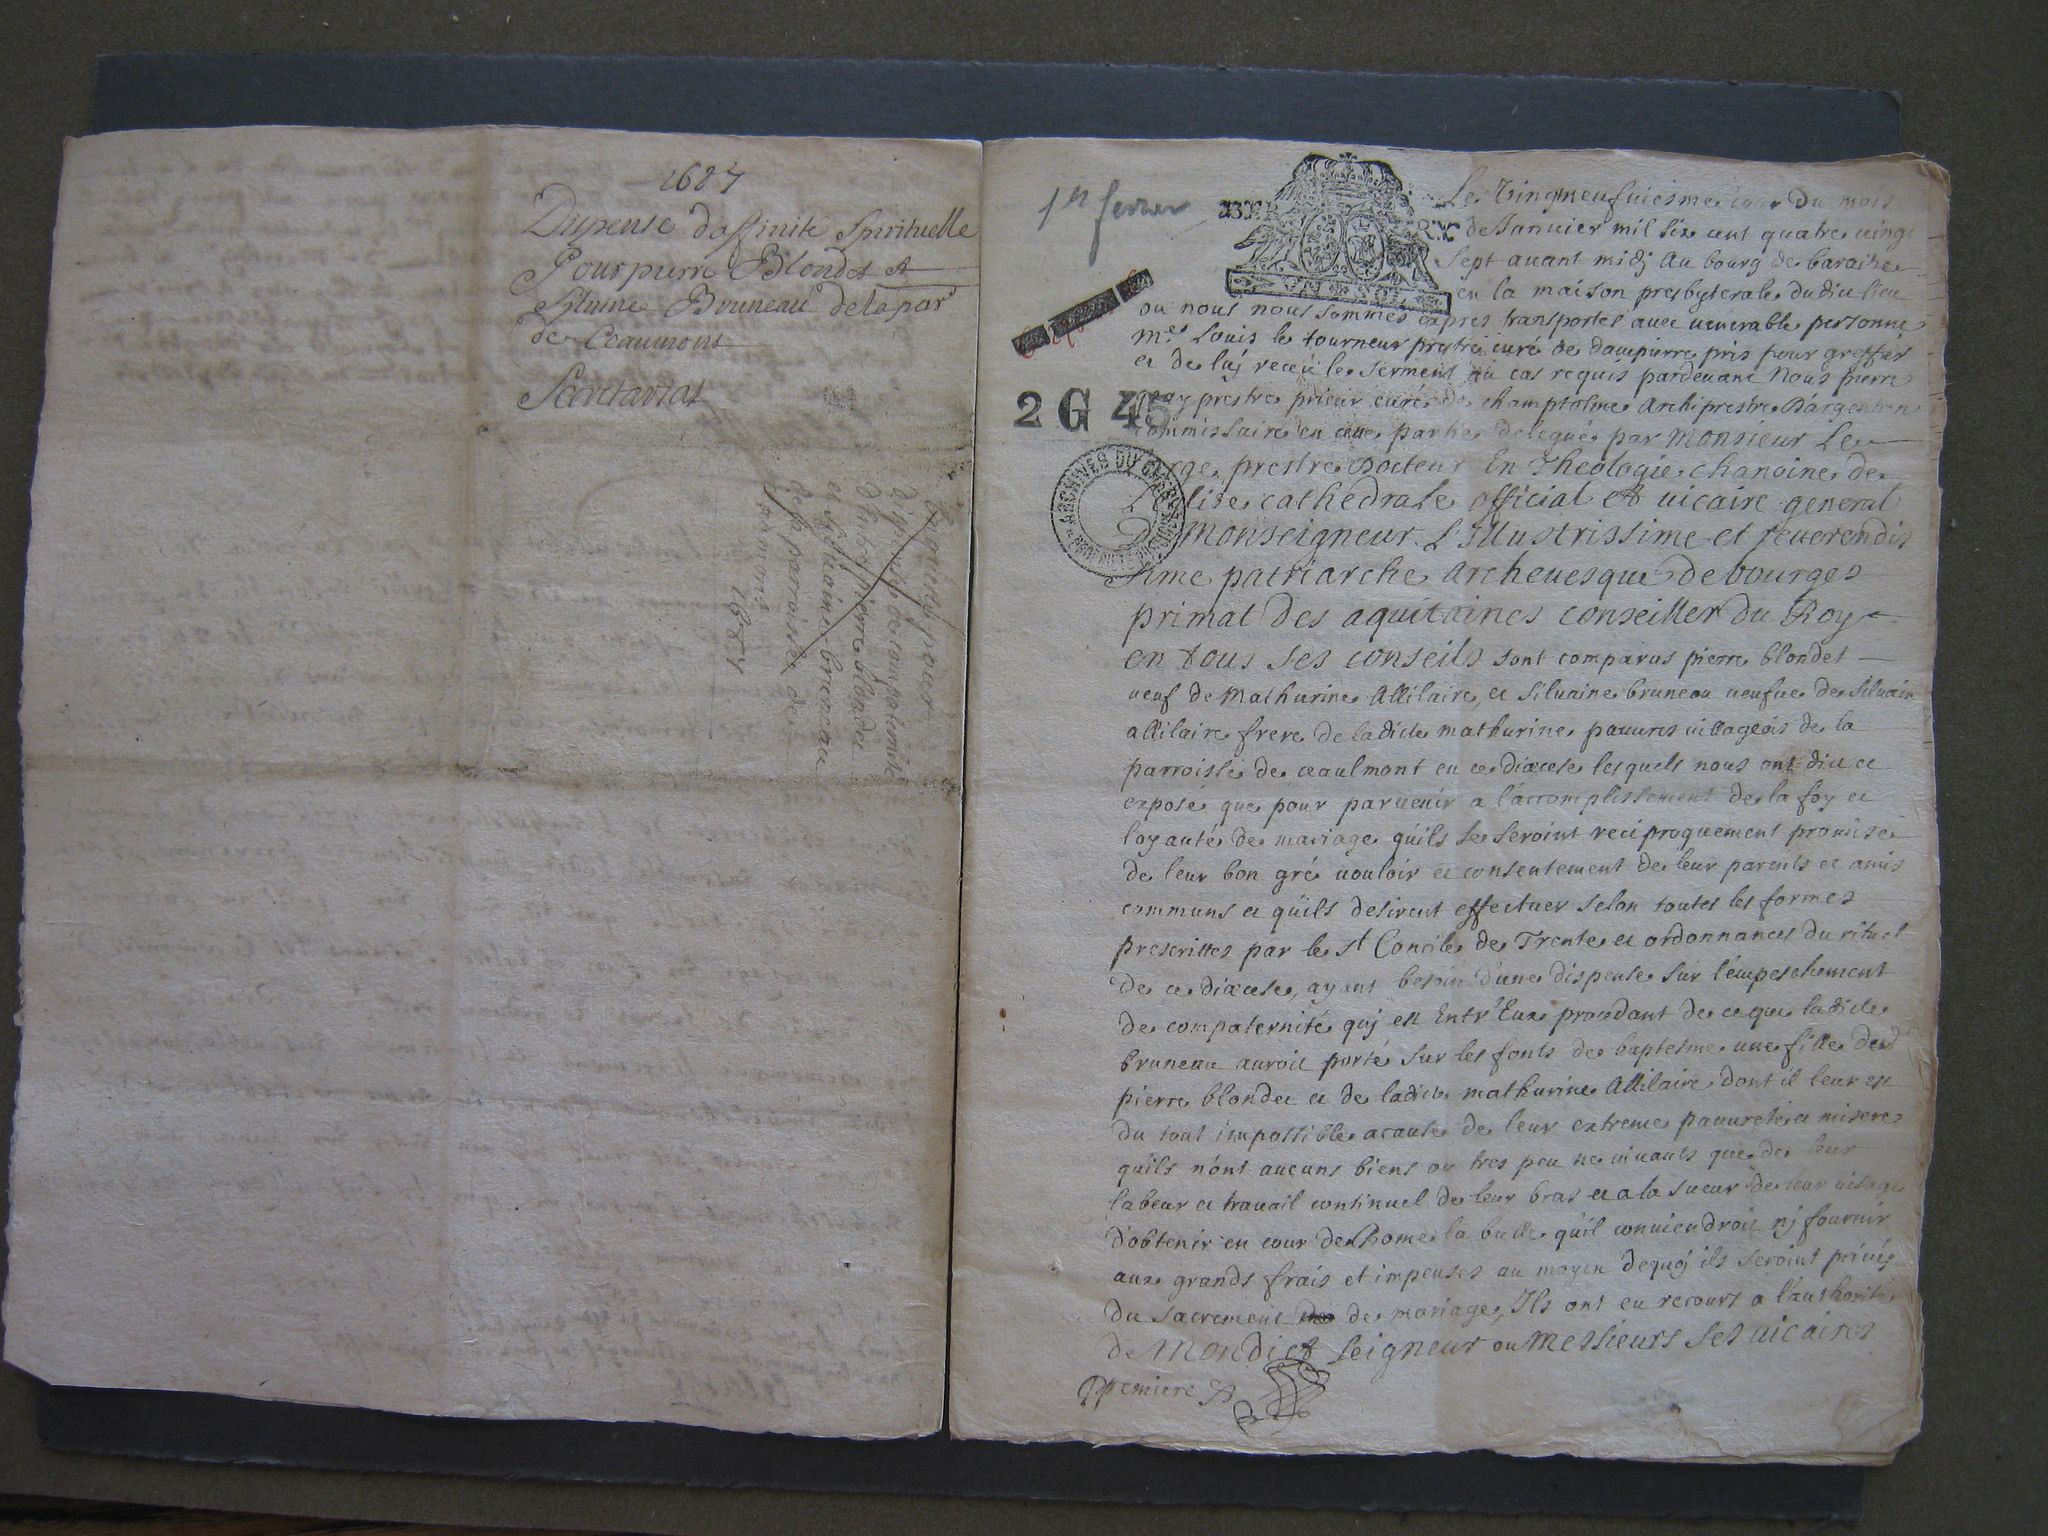 1687
Dispense daffinité Spirituelle
Pour pierre Blondet et
Siluine Bruneau de la par
de Ceaumont
Secretariat
Enqueste pour
dispense de compaternité
d'Entre pierre blondet
et Siluaine bruneau
de la parroisse de
seaumont
1687
1er fevrier
BER RY
2 G 45
ARCHIVES DU CHER
Le Vingtneufuiesme jour du mois
de Januier mil six cent quatre vingt
Sept auant midj au bourg de baraize
en la maison presbyterale dudict lieu
ou nous nous sommes expres transportes auec venerable personne
Mre Louis le tourneur prestre curé de dampierre pris pour greffier
et de luj receu le serment au cas requis pardeuant Nous pierre
prestre prieur curé de chomptolme Archiprestre D'argenton
commissaire en cette partie delegué par Monsieur Le
prestre Docteur En Theologie chanoine de
L'Eglise cathedrale official et vicaire general
De Monseigneur L'Illustrissime et reuerendis
sime patriarche Archeuesque de bourges
primat des aquitaines conseiller du Roy
en tous ses conseils sont comparus pierre blondet
veuf de Mathurine Allilaire, et Siluaine bruneau veufue de Siluain
allilaire frere de ladicte mathurine pauures villageois de la
parroisse de ceaulmont en ce diocese lesquels nous ont dict et
exposé que pour paruenir a l'accomplissement de la foy et
loyauté de mariage qu'ils se seroint reciproquement promise
de leur bon gré vouloir et consentement de leur parents et amis
communs et qu'ils desirent effectuer selon toutes les formes
prescrittes par le St Concile de Trente et ordonnances du rituel
de ce diocese, ayant besoin d'une dispense sur l'empeschement
de compaternité quj est Entr'Eux procedant de ce que ladicte
bruneau auroit porté sur les fonts de baptesme une fille dud
pierre blondet et de ladicte mathurine Allilaire dont il leur est
du tout impossible acause de leur extreme pauureté et misere
quils n'ont aucuns biens ou tres peu ne viuants que de leur
labeur et trauail continuel de leur bras et a la sueur de leur visage
d'obtenir en cour de Rome la bulle qu'il conuiendroit nj fournir
aux grands frais et impenses au moyen dequoj ils seroint priués
du sacrement de mariage, Ils ont eu recours a l'authorité
de Mondict Seigneur ou Messieurs Ses vicaires
Ppemiere